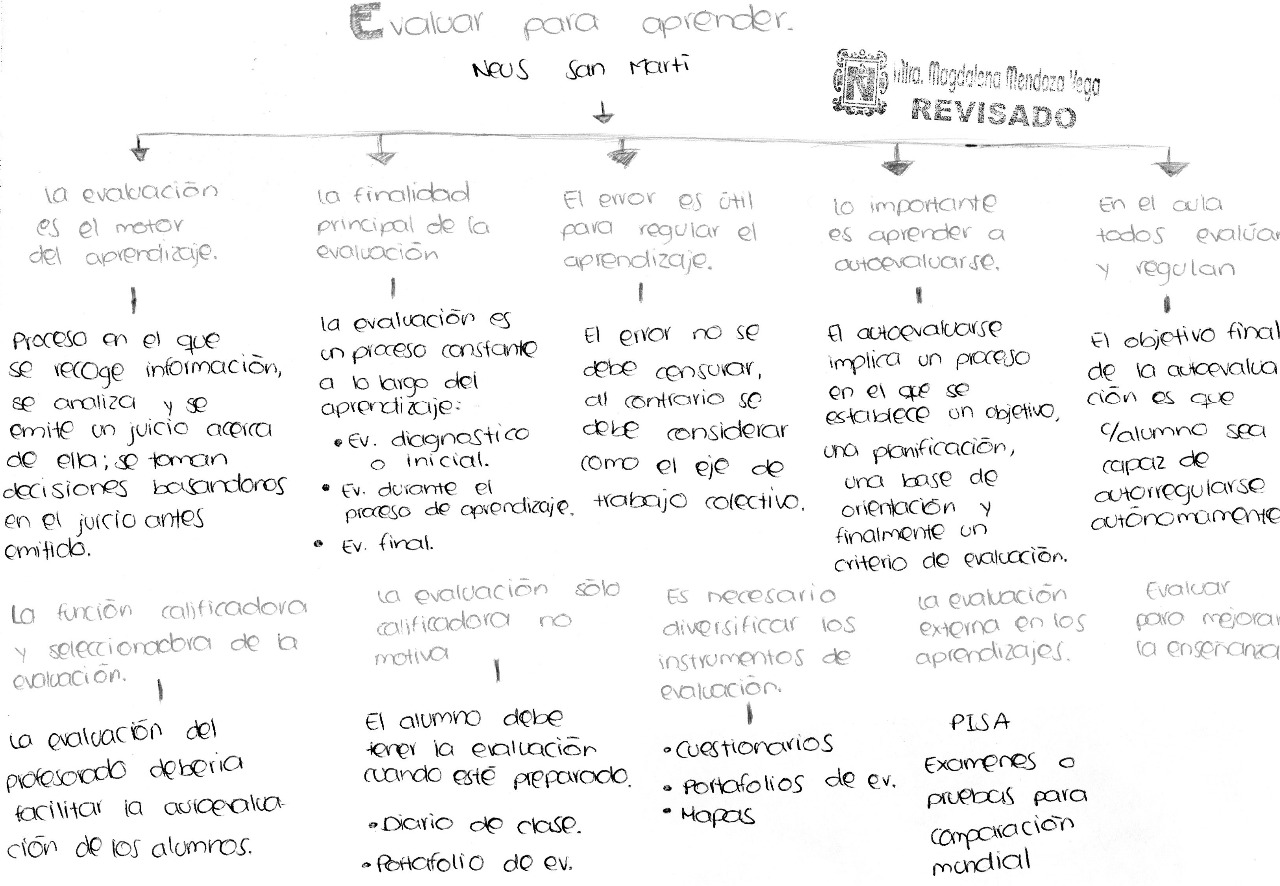 Evaluar para aprender.
Neus San Martí
Mtra. Magdalena Mendoza Vega
REVISADO
la evaluación
es el motor
del aprendizaje.
Proceso en el que
se recoge información,
se analiza y se
emite un juicio acerca
de ella; se toman
decisiones basandonos
en el juicio antes
emitido.
la finalidad
principal de la
evaluación
la evaluación es
un proceso constante
a lo largo del
aprendizaje:
• Ev. diagnostico
o inicial.
• Ev. durante el
proceso de aprendizaje.
• Ev. final.
El error es útil
para regular el
aprendizaje.
El error no se
debe censurar,
al contrario se
debe considerar
como el eje de
trabajo colectivo.
lo importante
es aprender a
autoevaluarse.
El autoevaluarse
implica un proceso
en el que se
establece un objetivo,
una planificación,
una base de
orientación y
finalmente un
criterio de evaluación.
En el aula
todos evalúan
y regulan
El objetivo final
de la autoevalua
ción es que
c/alumno sea
capaz de
autorregularse
autónomamente
La función calificadora
y seleccionadora de la
evaluación.
La evaluación del
profesorado deberia
facilitar la autoevalua-
ción de los alumnos.
la evaluación sólo
calificadora no
motiva
El alumno debe
tener la evaluación
cuando esté preparado.
• Diario de clase.
• Portafolio de ev.
Es necesario
diversificar los
instrumentos de
evaluación.
• Cuestionarios
• Portafolios de ev.
• Mapas
la evaluación
externa en los
aprendizajes.
PISA
Examenes o
pruebas para
comparación
mundial
Evaluar
para mejorar
la enseñanza